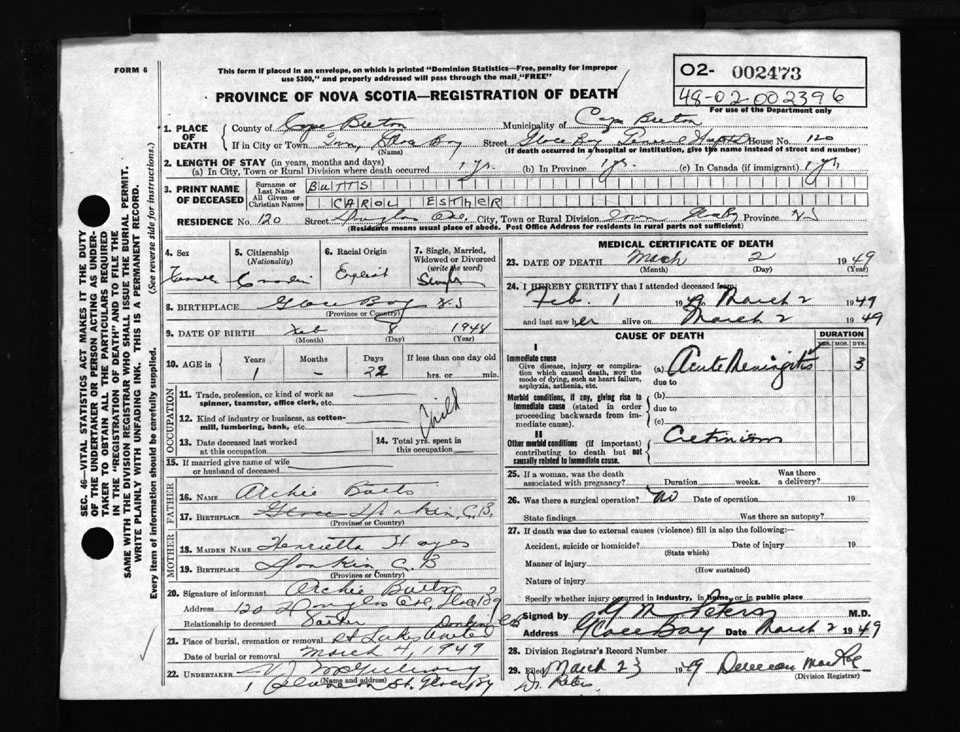 FORM 6
This form if placed in an envelope, on which is printed "Dominion Statistics—Free, penalty for improper
use $300," and properly addressed will pass through the mail, "FREE"
PROVINCE OF NOVA SCOTIA—REGISTRATION OF DEATH
02- 002473
48-02-002396
For use of the Department only
1. PLACE OF DEATH
County of Cape Breton Municipality of Cape Breton
If in City or Town Town, Glace Bay Street Glace Bay General Hospital House No. 120
(Name) (If death occurred in a hospital or institution, give the name instead of street and number)
2. LENGTH OF STAY (in years, months and days)
(a) In City, Town or Rural Division where death occurred 1 yr. (b) In Province 1 yr. (c) In Canada (if immigrant) 1 yr
3. PRINT NAME OF DECEASED
Surname or Last Name BUTTS
All Given or Christian Names CAROL ESTHER
RESIDENCE No. 120 Street Douglas Ave, City, Town or Rural Division Town Glace Bay Province N.S
(Residence means usual place of abode. Post Office Address for residents in rural parts not sufficient)
4. Sex
5. Citizenship (Nationality)
6. Racial Origin English
7. Single, Married, Widowed or Divorced (write the word) Single
8. BIRTHPLACE Glace Bay N.S
(Province or Country)
9. DATE OF BIRTH Feb 8 1948
(Month) (Day) (Year)
10. AGE in Years Months Days If less than one day old
1 - 22 hrs. or min.
OCCUPATION
11. Trade, profession, or kind of work as
spinner, teamster, office clerk, etc.
12. Kind of industry or business, as cotton-
mill, lumbering, bank, etc.
Child
13. Date deceased last worked
at this occupation
14. Total yrs. spent in
this occupation
15. If married give name of wife
or husband of deceased
FATHER
16. NAME Archie Butts
17. BIRTHPLACE C.B.
(Province or Country)
MOTHER
18. MAIDEN NAME Henrietta Hayes
19. BIRTHPLACE Donkin C B
(Province or Country)
20. Signature of informant Archie Butts
Address 120 Douglas Ave, Glace Bay
Relationship to deceased Father Donkin, CB
21. Place of burial, cremation or removal St Lukes United
Date of burial or removal March 4, 1949
22. UNDERTAKER
(Name and address)
St. Glace Bay
MEDICAL CERTIFICATE OF DEATH
23. DATE OF DEATH March 2 1949
(Month) (Day) (Year)
24. I HEREBY CERTIFY that I attended deceased from
Feb. 1 1949 March 2 1949
and last saw her alive on March 2 1949
CAUSE OF DEATH
DURATION
YRS. MOS. DYS.
I
Immediate cause
Give disease, injury or complica-
tion which caused death, not the
mode of dying, such as heart failure,
asphyxia, asthenia, etc.
(a) Acute Meningitis 3
due to
Morbid conditions, if any, giving rise to
immediate cause (stated in order
proceeding backwards from im-
mediate cause).
(b)
due to
(c)
II
Other morbid conditions (if important)
contributing to death but not
causally related to immediate cause.
Cretinism
25. If a woman, was the death
associated with pregnancy? Duration weeks. Was there
a delivery?
26. Was there a surgical operation? no Date of operation 19
State findings Was there an autopsy?
27. If death was due to external causes (violence) fill in also the following:—
Accident, suicide or homicide? Date of injury 19
(State which)
Manner of injury
(How sustained)
Nature of injury
Specify whether injury occurred in industry, in home, or in public place
Signed by G N Peters M.D.
Address Glace Bay Date March 2 1949
28. Division Registrar's Record Number
29. Filed March 23 1949
(Division Registrar)
Dr. Peters.
SEC. 46—VITAL STATISTICS ACT MAKES IT THE DUTY
OF THE UNDERTAKER OR PERSON ACTING AS UNDER-
TAKER TO OBTAIN ALL THE PARTICULARS REQUIRED
IN THE "REGISTRATION OF DEATH" AND TO FILE THE
SAME WITH THE DIVISION REGISTRAR WHO SHALL ISSUE THE BURIAL PERMIT.
WRITE PLAINLY WITH UNFADING INK. THIS IS A PERMANENT RECORD.
Every item of information should be carefully supplied. (See reverse side for instructions.)